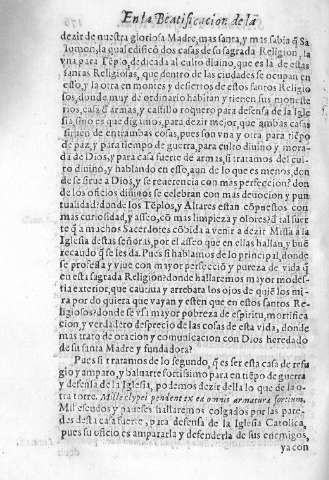 En la Beatificacion de la
dezir de nuestra gloriosa Madre, mas santa, y mas sabia q̃ Sa
lomon, la qual edificò dos casas de su sagrada Religion, la
vna para Tẽplo, dedicada al culto diuino, que es la de estas
santas Religiosas, que dentro de las ciudades se ocupan en
esso, y la otra en montes y desiertos de estos santos Religio
sos, donde muy de ordinario habitan y tienen sus moneste
rios, casa d̃ armas, y castillo roquero para defensa de la Igle
sia, sino es que digamos, para dezir mejor, que ambas casas
siruen de entrambas cosas, pues son vna y otra para tiẽpo
de paz, y para tiempo de guerra, para culto diuino y mora-
da de Dios, y para casa fuerte de armas, si tratamos del cul-
to diuino, y hablando en esso, aun de lo que es menos, don
de se sirue a Dios, y se reuerencia con mas perfeccion? don
de los oficios diuinos se celebran con mas deuocion y pun
tualidad? donde los Tẽplos, y Altares estan cõpuestos con
mas curiosidad, y asseo, cõ mas limpieza y olores? d̃ tal suer
te q̃ a muchos Sacerdotes cõbida a venir a dezir Missa a la
Iglesia destas señoras, por el asseo que en ellas hallan, y buẽ
recaudo q̃ se les da. Pues si hablamos de lo principal, donde
se professa y viue con mayor perfecciõ y pureza de vida q̃
en esta sagrada Religion? donde hallaremos mayor modes-
tia exterior, que cautiua y arrebata los ojos de quiẽ los mi-
ra por do quiera que vayan y estẽn que en estos santos Re-
ligiosos? donde se vsa mayor pobreza de espiritu, mortifica
cion, y verdadero desprecio de las cosas de esta vida, donde
mas trato de oracion y comunicacion con Dios heredado
de su santa Madre y fundadora?
Pues si tratamos de lo segundo, q̃ es ser esta casa de refu
gio y amparo, y baluarte fortissimo para en tiẽpo de guerra
y defensa de la Iglesia, podemos dezir della lo que de la o-
tra torre. Mille clypei pendent ex ea omnis armatura fortium.
Mil escudos y paueses hallaremos colgados por las pare-
des desta casa fuerte, para defensa de la Iglesia Catolica,
pues su oficio es ampararla y defenderla de sus enemigos,
ya con